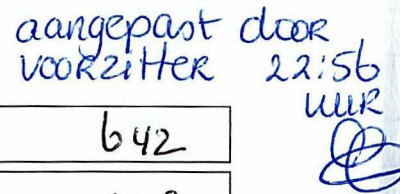 aangepast door
voorzitter 22:56
uur
642